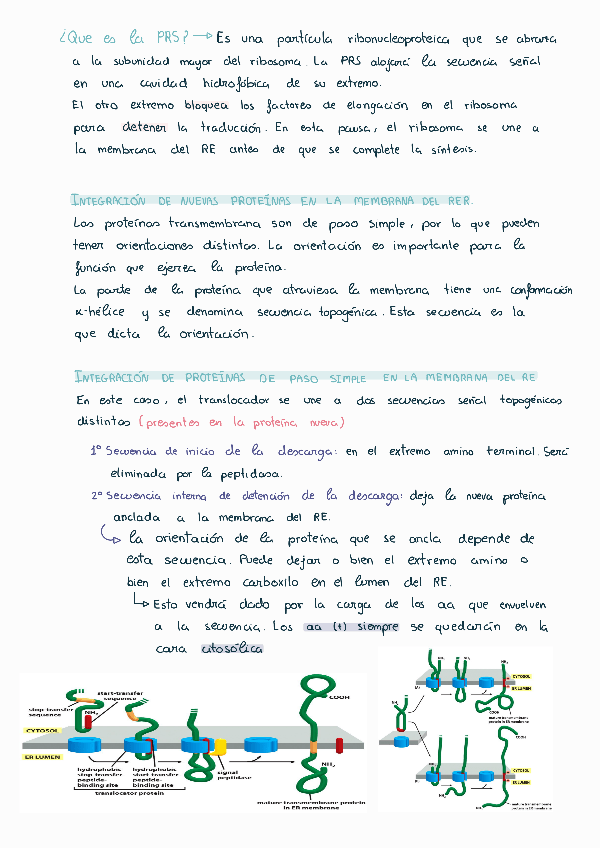 ¿Que es la PRS? → Es una partícula ribonucleoproteica que se abraza
a la subunidad mayor del ribosoma. La PRS alojará la secuencia señal
en una cavidad hidrofóbica de su extremo.
El otro extremo bloquea los factores de elongación en el ribosoma
para detener la traducción. En esta pausa, el ribosoma se une a
la membrana del RE antes de que se complete la síntesis.
INTEGRACIÓN DE NUEVAS PROTEÍNAS EN LA MEMBRANA DEL RER.
Las proteínas transmembrana son de paso simple, por lo que pueden
tener orientaciones distintas. La orientación es importante para la
función que ejerza la proteína.
La parte de la proteína que atraviesa la membrana tiene una conformación
α-hélice y se denomina secuencia topogénica. Esta secuencia es la
que dicta la orientación.
INTEGRACIÓN DE PROTEÍNAS DE PASO SIMPLE EN LA MEMBRANA DEL RE
En este caso, el translocador se une a dos secuencias señal topogénicas
distintas (presentes en la proteína nueva)
1º Secuencia de inicio de la descarga: en el extremo amino terminal. Será
eliminada por la peptidasa.
2º Secuencia interna de detención de la descarga: deja la nueva proteína
anclada a la membrana del RE.
la orientación de la proteína que se ancla depende de
esta secuencia. Puede dejar o bien el extremo amino o
bien el extremo carboxilo en el lumen del RE.
Esto vendrá dado por la carga de los aa que envuelven
a la secuencia. Los aa (+) siempre se quedarán en la
cara citosólica
start-transfer
sequence
stop-transfer
sequence
NH₂
CYTOSOL
ER LUMEN
hydrophobic
stop-transfer
peptide-
binding site
hydrophobic
start-transfer
peptide-
binding site
translocator protein
signal
peptidase
COOH
NH₂
mature transmembrane protein
in ER membrane
CYTOSOL
ER LUMEN
NH₂
COOH
mature transmembrane
protein in ER membrane
COOH
CYTOSOL
ER LUMEN
NH₂
mature transmembrane
protein in ER membrane